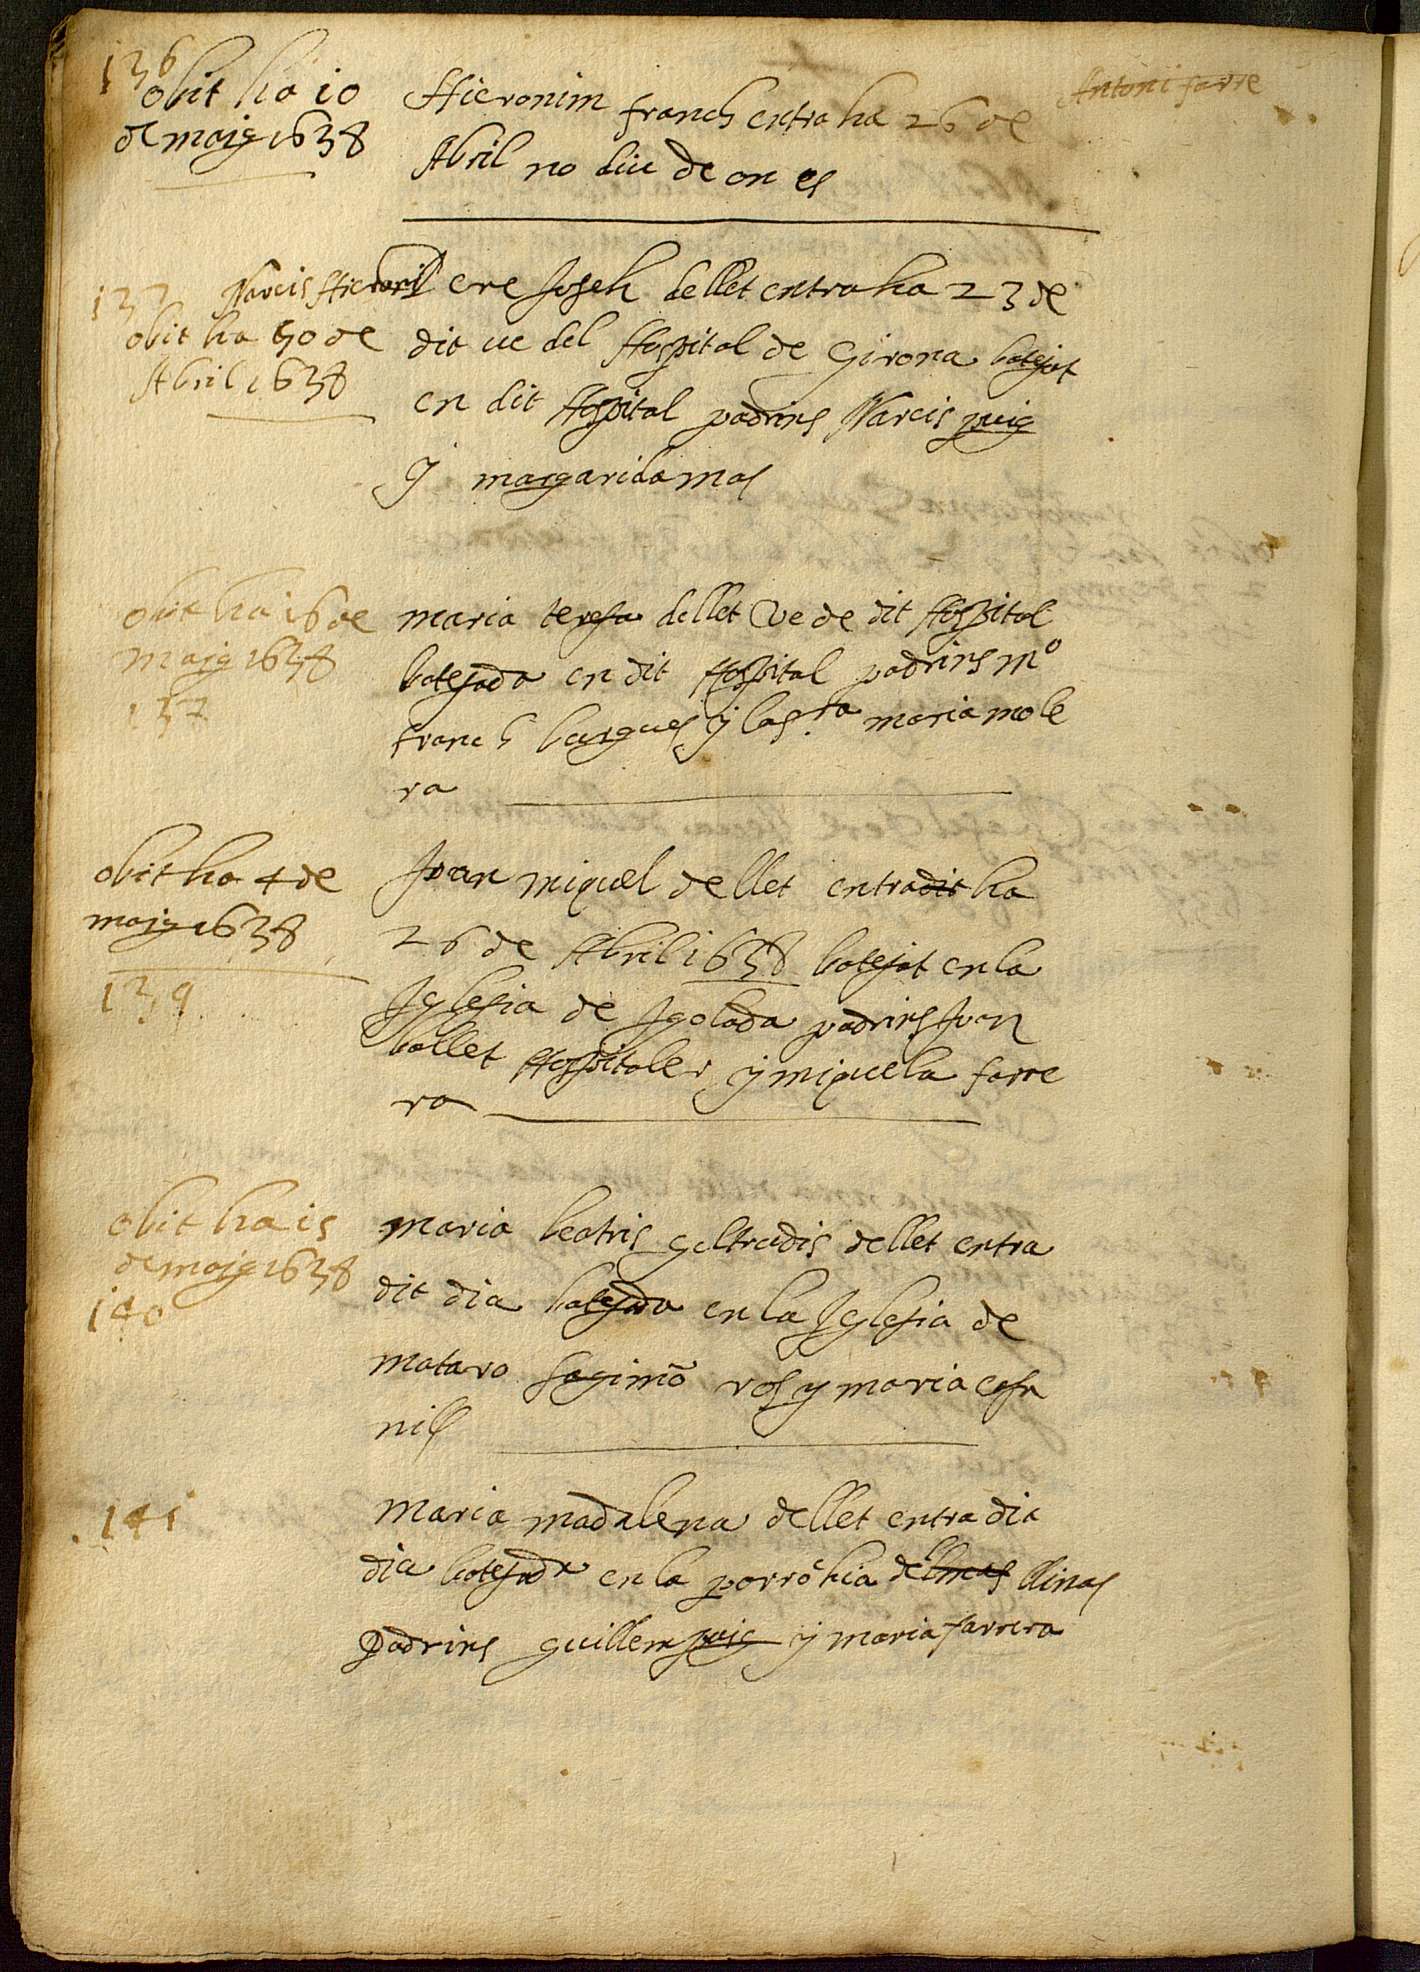 136
obit ha 10
de maig 1638
Hieronim franch entra ha 26 de
Abril no diu de on es
Antoni farre
137
Narcis Hieroni
obit ha 30 de
Abril 1638
ere Joseh de llet entra ha 23 de
dit ve del Hospital de Girona batejat
en dit Hospital padrins Narcis puig
y margarida mas
obit ha 16 de
maig 1638
137
maria teresa de llet Ve de dit Hospital
batejada en dit Hospital padrins mº
franch burgues y la sra maria mole
ra
obit ha 4 de
maig 1638
139
Joan miquel de llet entra dit ha
26 de Abril 1638 batejat en la
Iglesia de Igolada padrins Juan
ballet Hospitaler y miquela farre
ra
obit ha 15
de maig 1638
140
maria beatris geltrudis de llet entra
dit dia batejada en la Iglesia de
mataro sagimō ros y maria casa
nils
141
maria madalena de llet entra dit
dia batejada en la parrohia de llinas
padrins guillem puig y maria farrera